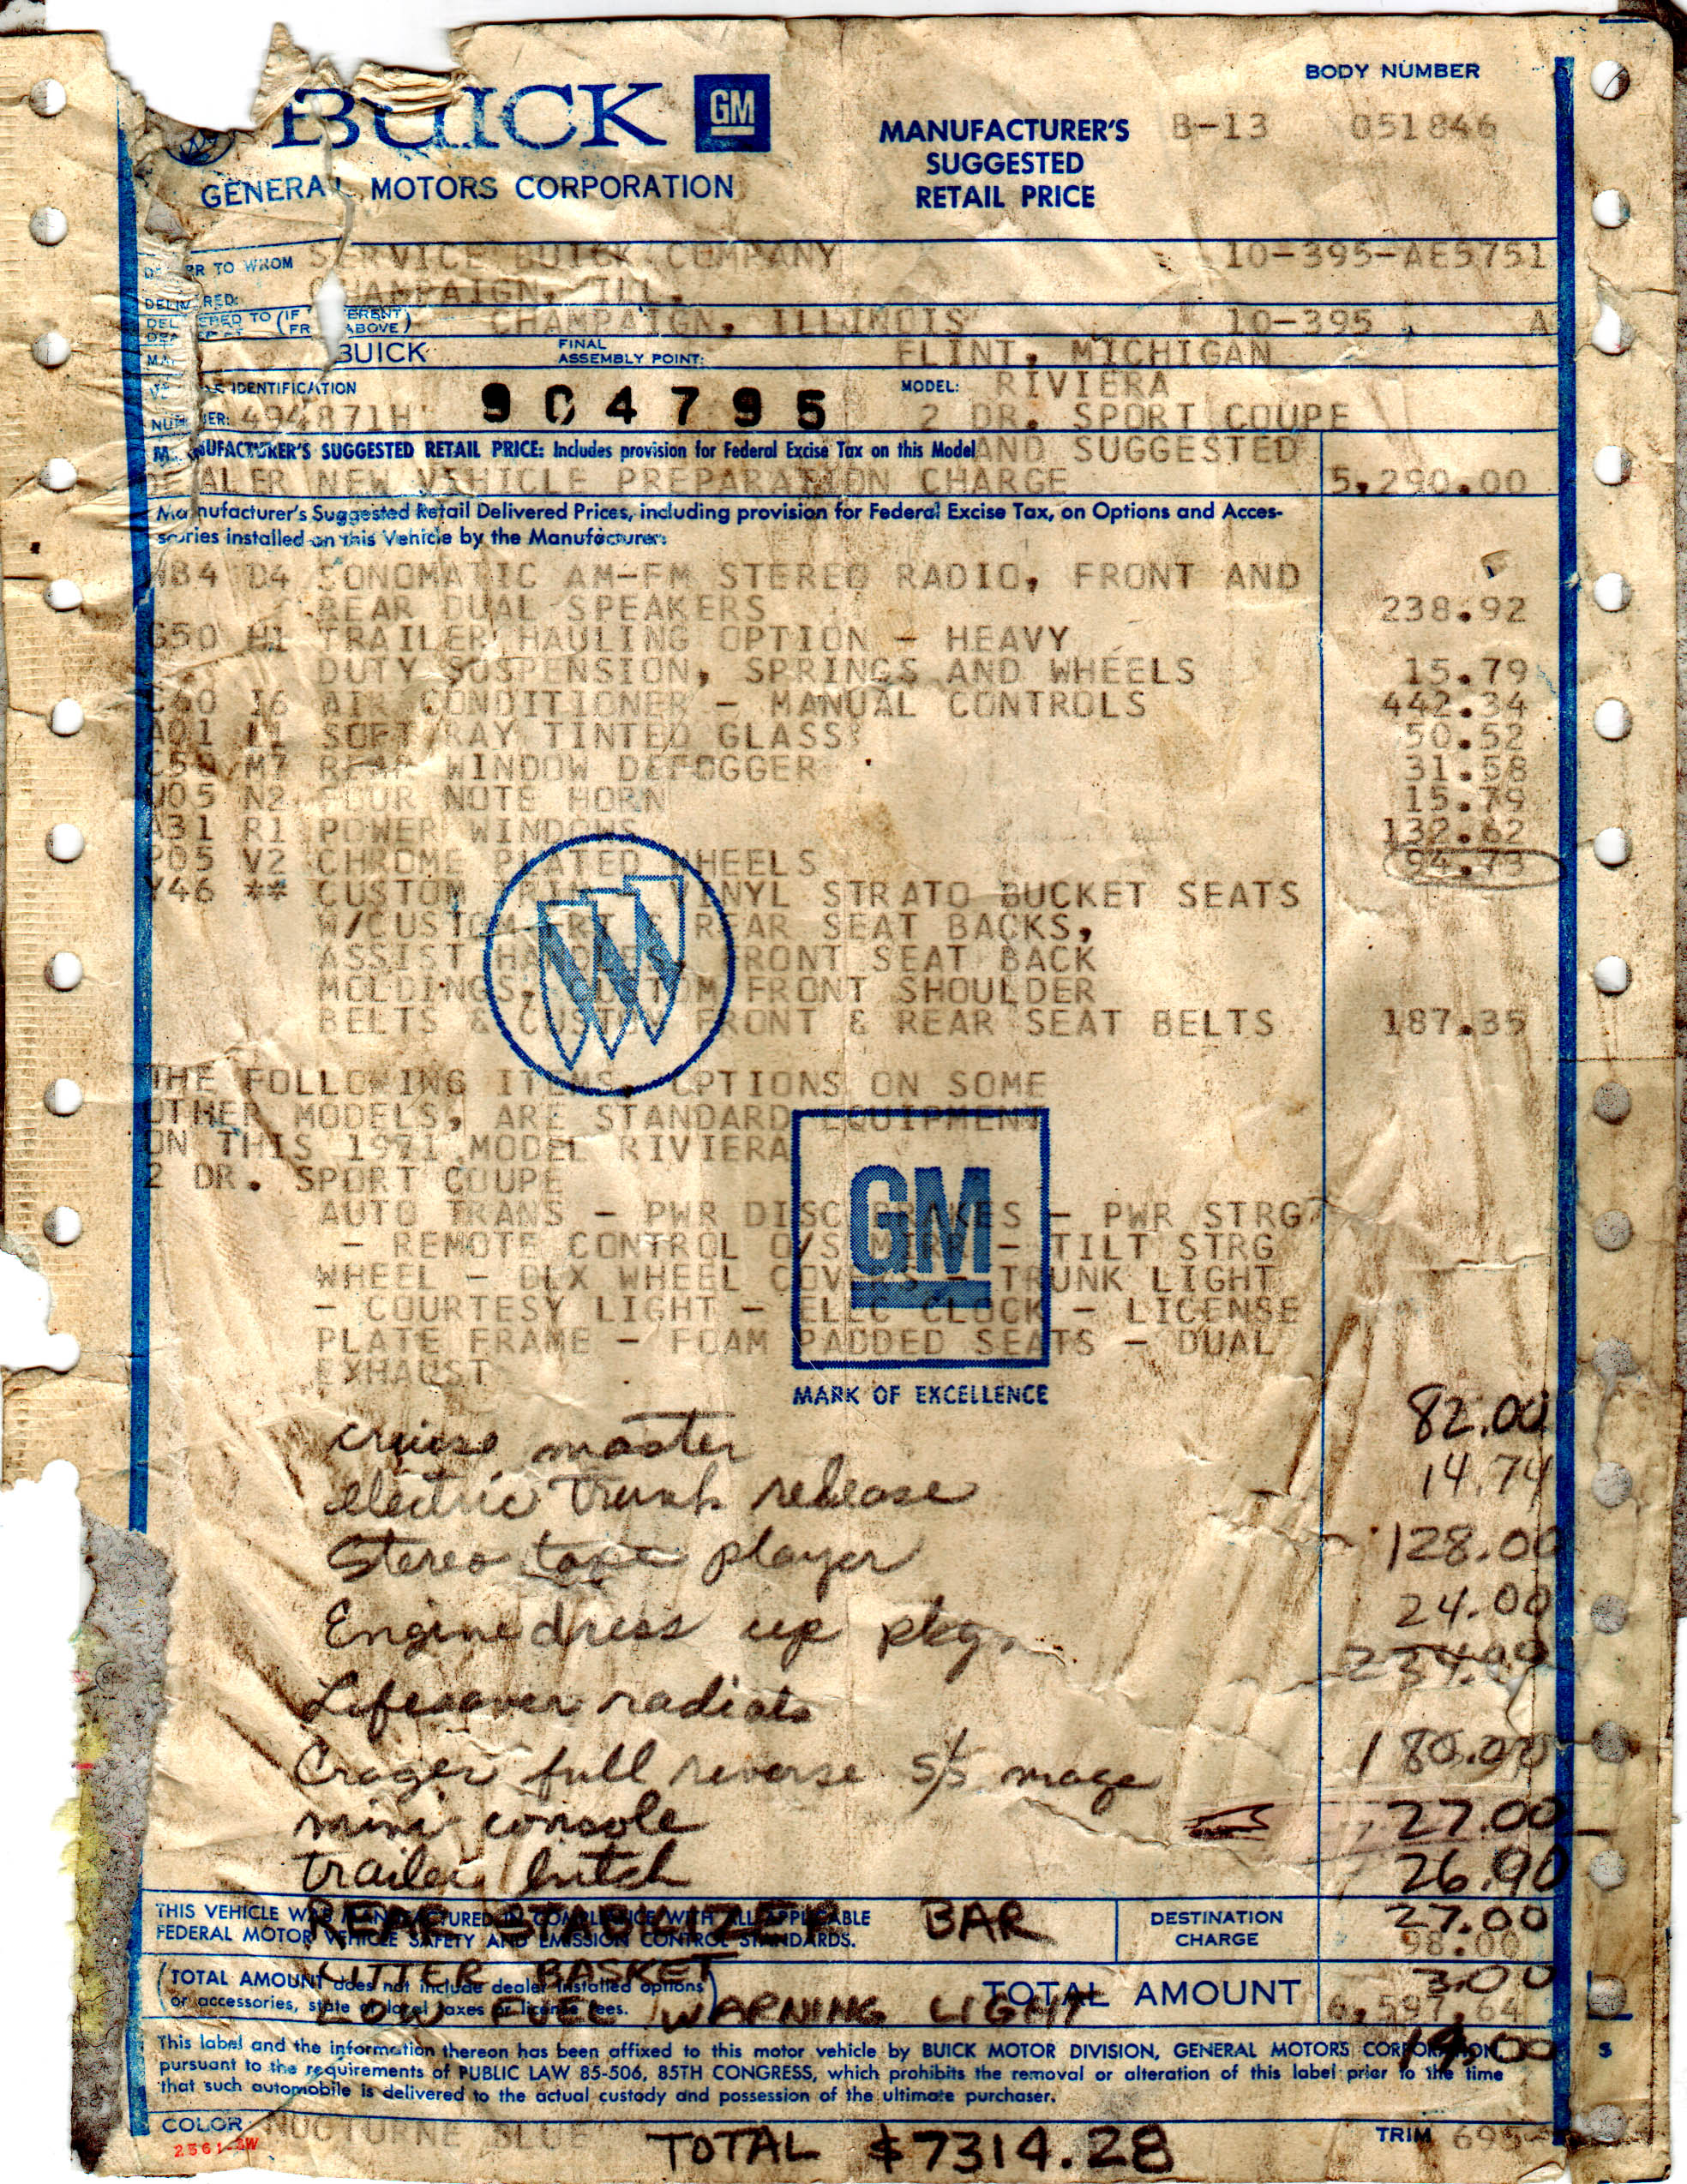 BUICK GM
GENERAL MOTORS CORPORATION
MANUFACTURER'S
SUGGESTED
RETAIL PRICE
BODY NUMBER
B-13 051846
TO WHOM SERVICE BUICK COMPANY 10-395-AE5751
CHAMPAIGN, ILL.
TO (IF CHAMPAIGN, ILLINOIS 10-395 A
ABOVE)
BUICK FINAL ASSEMBLY POINT: FLINT, MICHIGAN
IDENTIFICATION MODEL: RIVIERA
494871H 904795 2 DR. SPORT COUPE
MANUFACTURER'S SUGGESTED RETAIL PRICE: Includes provision for Federal Excise Tax on this Model AND SUGGESTED
DEALER NEW VEHICLE PREPARATION CHARGE 5,290.00
Manufacturer's Suggested Retail Delivered Prices, including provision for Federal Excise Tax, on Options and Acces-
sories installed on this Vehicle by the Manufacturer:
D4 SONOMATIC AM-FM STEREO RADIO, FRONT AND
REAR DUAL SPEAKERS 238.92
G50 H1 TRAILER HAULING OPTION - HEAVY
DUTY SUSPENSION, SPRINGS AND WHEELS 15.79
C60 I6 AIR CONDITIONER - MANUAL CONTROLS 442.34
A01 L1 SOFT RAY TINTED GLASS 50.52
C50 M7 REAR WINDOW DEFOGGER 31.58
U05 N2 FOUR NOTE HORN 15.79
A31 R1 POWER WINDOWS 132.62
P05 V2 CHROME PLATED WHEELS 94.73
Y46 ** CUSTOM TRIM - VINYL STRATO BUCKET SEATS
W/CUSTOM FRT & REAR SEAT BACKS,
ASSIST HANDLES, FRONT SEAT BACK
MOLDINGS, CUSTOM FRONT SHOULDER
BELTS & CUSTOM FRONT & REAR SEAT BELTS 187.35
THE FOLLOWING ITEMS, OPTIONS ON SOME
OTHER MODELS, ARE STANDARD EQUIPMENT
ON THIS 1971 MODEL RIVIERA
2 DR. SPORT COUPE
AUTO TRANS - PWR DISC BRAKES - PWR STRG
- REMOTE CONTROL O/S MIRR - TILT STRG
WHEEL - DLX WHEEL COVERS - TRUNK LIGHT
- COURTESY LIGHT - ELEC CLOCK - LICENSE
PLATE FRAME - FOAM PADDED SEATS - DUAL
EXHAUST
GM
MARK OF EXCELLENCE
cruise master 82.00
electric trunk release 14.74
Stereo tape player 128.00
Engine dress up pkg. 24.00
Lifesaver radials 234.00
Crager full reverse s/s mags 180.00
mini console 27.00
trailer hitch 26.90
THIS VEHICLE WAS MANUFACTURED IN COMPLIANCE WITH ALL APPLICABLE
FEDERAL MOTOR VEHICLE SAFETY AND EMISSION CONTROL STANDARDS.
REAR STABILIZER BAR 27.00
DESTINATION
CHARGE 98.00
LITTER BASKET 3.00
(TOTAL AMOUNT does not include dealer installed options
or accessories, state or local taxes or license fees.)
TOTAL AMOUNT 6,597.64
LOW FUEL WARNING LIGHT 14.00
This label and the information thereon has been affixed to this motor vehicle by BUICK MOTOR DIVISION, GENERAL MOTORS CORPORATION
pursuant to the requirements of PUBLIC LAW 85-506, 85TH CONGRESS, which prohibits the removal or alteration of this label prior to the time
that such automobile is delivered to the actual custody and possession of the ultimate purchaser.
COLOR NOCTURNE BLUE TRIM 695
2561-3W
TOTAL $7314.28